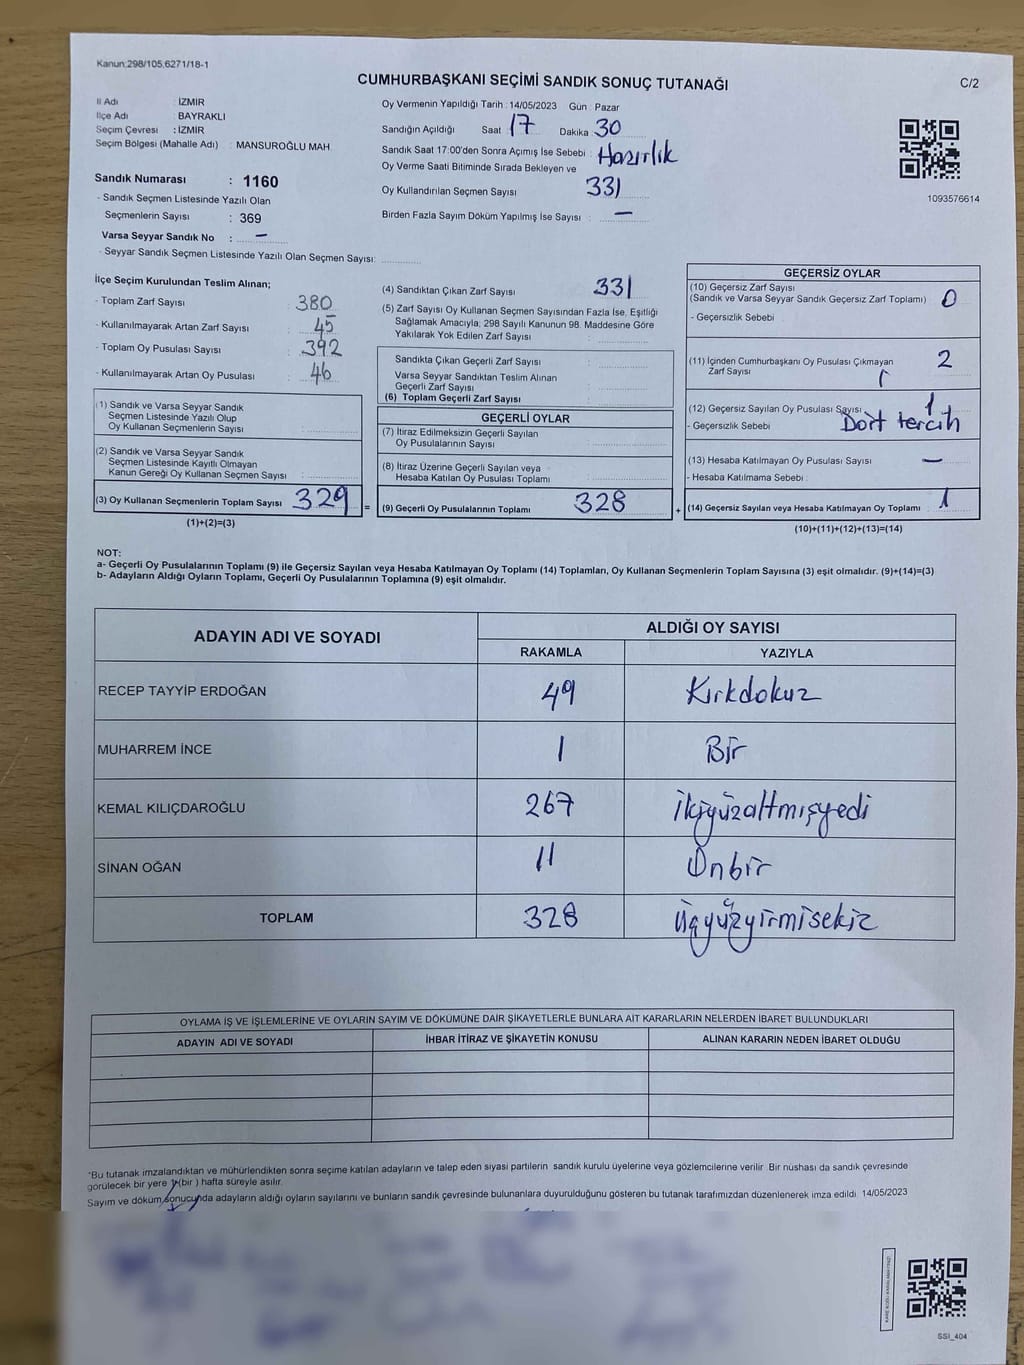 Kanun:298/105,6271/18-1
CUMHURBAŞKANI SEÇİMİ SANDIK SONUÇ TUTANAĞI
C/2
İl Adı : İZMİR
İlçe Adı : BAYRAKLI
Seçim Çevresi : İZMİR
Seçim Bölgesi (Mahalle Adı) : MANSUROĞLU MAH.
Oy Vermenin Yapıldığı Tarih : 14/05/2023 Gün : Pazar
Sandığın Açıldığı Saat 17 Dakika 30
Sandık Saat 17:00'den Sonra Açımış İse Sebebi : Hazırlık
Oy Verme Saati Bitiminde Sırada Bekleyen ve
Oy Kullandırılan Seçmen Sayısı 331
Birden Fazla Sayım Döküm Yapılmış İse Sayısı : —
1093576614
Sandık Numarası : 1160
- Sandık Seçmen Listesinde Yazılı Olan
Seçmenlerin Sayısı : 369
Varsa Seyyar Sandık No : —
- Seyyar Sandık Seçmen Listesinde Yazılı Olan Seçmen Sayısı:
İlçe Seçim Kurulundan Teslim Alınan;
- Toplam Zarf Sayısı : 380
- Kullanılmayarak Artan Zarf Sayısı : 45
- Toplam Oy Pusulası Sayısı : 392
- Kullanılmayarak Artan Oy Pusulası : 46
(1) Sandık ve Varsa Seyyar Sandık
Seçmen Listesinde Yazılı Olup
Oy Kullanan Seçmenlerin Sayısı :
(2) Sandık ve Varsa Seyyar Sandık
Seçmen Listesinde Kayıtlı Olmayan
Kanun Gereği Oy Kullanan Seçmen Sayısı :
(3) Oy Kullanan Seçmenlerin Toplam Sayısı 329
(1)+(2)=(3)
=
(4) Sandıktan Çıkan Zarf Sayısı : 331
(5) Zarf Sayısı Oy Kullanan Seçmen Sayısından Fazla İse, Eşitliği
Sağlamak Amacıyla; 298 Sayılı Kanunun 98. Maddesine Göre
Yakılarak Yok Edilen Zarf Sayısı :
Sandıkta Çıkan Geçerli Zarf Sayısı :
Varsa Seyyar Sandıktan Teslim Alınan
Geçerli Zarf Sayısı :
(6) Toplam Geçerli Zarf Sayısı :
GEÇERLİ OYLAR
(7) İtiraz Edilmeksizin Geçerli Sayılan
Oy Pusulalarının Sayısı :
(8) İtiraz Üzerine Geçerli Sayılan veya
Hesaba Katılan Oy Pusulası Toplamı :
(9) Geçerli Oy Pusulalarının Toplamı 328
+
GEÇERSİZ OYLAR
(10) Geçersiz Zarf Sayısı
(Sandık ve Varsa Seyyar Sandık Geçersiz Zarf Toplamı) : 0
- Geçersizlik Sebebi :
(11) İçinden Cumhurbaşkanı Oy Pusulası Çıkmayan
Zarf Sayısı 2
(12) Geçersiz Sayılan Oy Pusulası Sayısı : 1
- Geçersizlik Sebebi Dört tercih
(13) Hesaba Katılmayan Oy Pusulası Sayısı : —
- Hesaba Katılmama Sebebi :
(14) Geçersiz Sayılan veya Hesaba Katılmayan Oy Toplamı 1
(10)+(11)+(12)+(13)=(14)
NOT:
a- Geçerli Oy Pusulalarının Toplamı (9) ile Geçersiz Sayılan veya Hesaba Katılmayan Oy Toplamı (14) Toplamları, Oy Kullanan Seçmenlerin Toplam Sayısına (3) eşit olmalıdır. (9)+(14)=(3)
b- Adayların Aldığı Oyların Toplamı, Geçerli Oy Pusulalarının Toplamına (9) eşit olmalıdır.
ADAYIN ADI VE SOYADI
ALDIĞI OY SAYISI
RAKAMLA YAZIYLA
RECEP TAYYİP ERDOĞAN 49 Kırkdokuz
MUHARREM İNCE 1 Bir
KEMAL KILIÇDAROĞLU 267 ikiyüzaltmışyedi
SİNAN OĞAN 11 Onbir
TOPLAM 328 üçyüzyirmisekiz
OYLAMA İŞ VE İŞLEMLERİNE VE OYLARIN SAYIM VE DÖKÜMÜNE DAİR ŞİKAYETLERLE BUNLARA AİT KARARLARIN NELERDEN İBARET BULUNDUKLARI
ADAYIN ADI VE SOYADI İHBAR İTİRAZ VE ŞİKAYETİN KONUSU ALINAN KARARIN NEDEN İBARET OLDUĞU
*Bu tutanak imzalandıktan ve mühürlendikten sonra seçime katılan adayların ve talep eden siyasi partilerin sandık kurulu üyelerine veya gözlemcilerine verilir. Bir nushası da sandık çevresinde
görülecek bir yere 1 (bir ) hafta süreyle asılır.
Sayım ve döküm sonucunda adayların aldığı oyların sayılarını ve bunların sandık çevresinde bulunanlara duyurulduğunu gösteren bu tutanak tarafımızdan düzenlenerek imza edildi. 14/05/2023
SSİ_404